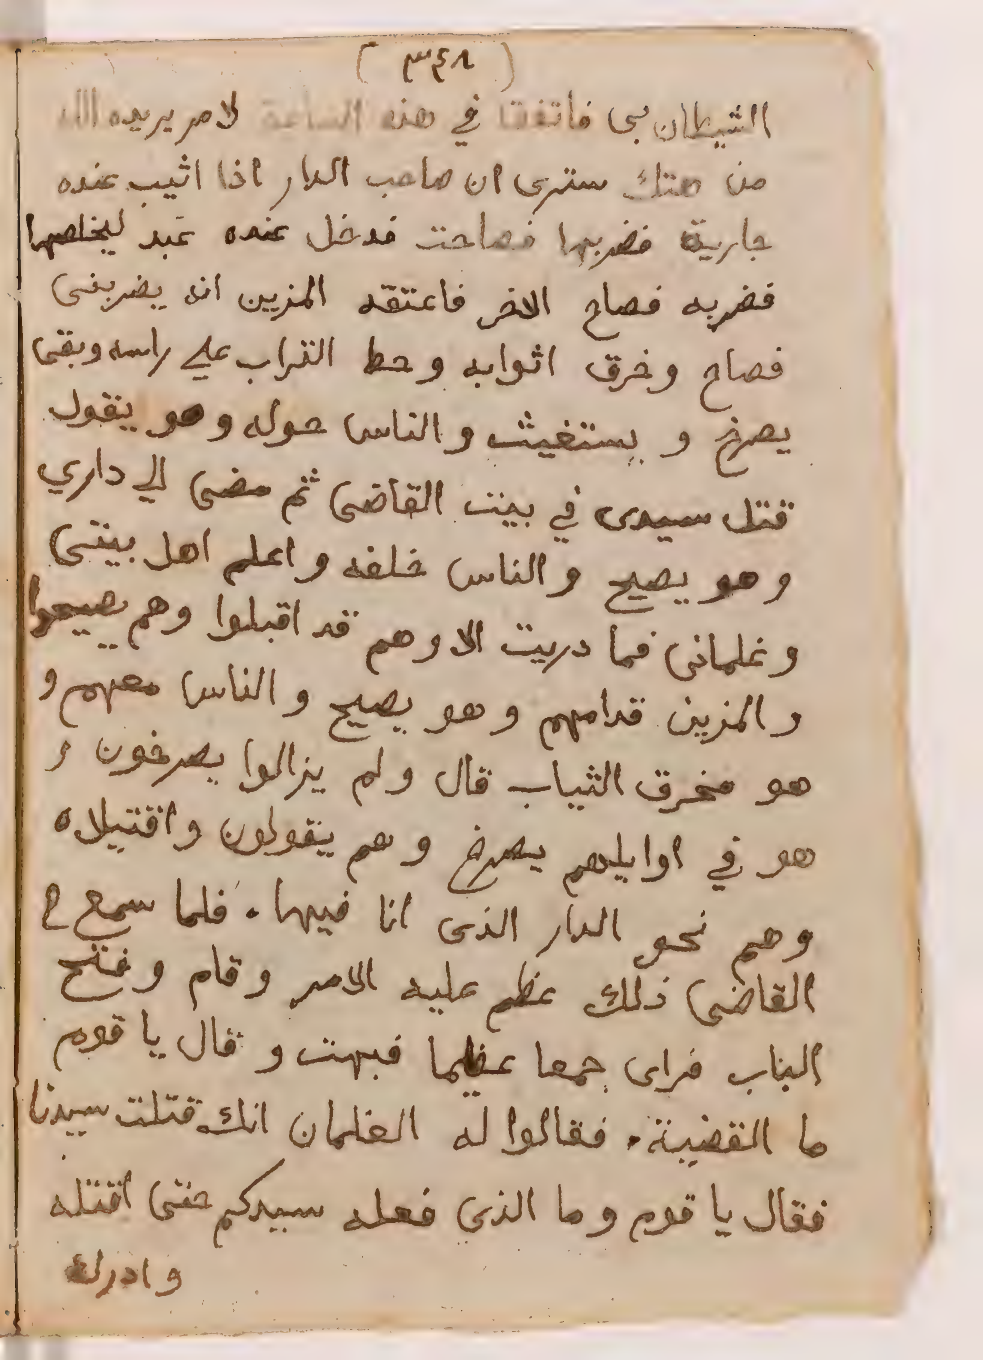 (٣٤٨)
الشيطان بي فاتفقا في هذه الساعة لامر يريده الله
من هتك سترى ان صاحب الدار اذا اثيب عنده
جارية فضربها فصاحت فدخل عنده عبد ليخلصها
فضربه فصاح الاخر فاعتقد المزين انه يضربنى
فصاح وخرق اثوابه وحط التراب علي راسه وبقى
يصرخ و يستغيث والناس حوله وهو يقول
قتل سيدى في بيت القاضى ثم مضى الي داري
وهو يصيح والناس خلفه واعلم اهل بيتى
وغلمانى فما دريت الا وهم قد اقبلوا وهم يصيحوا
والمزين قدامهم وهو يصيح والناس معهم و
هو مخرق الثياب قال ولم يزالوا يصرخون و
هو في اوايلهم يصرخ وهم يقولون واقتيلاه
وهم نحو الدار الذى انا فيها. فلما سمع
القاضى ذلك عظم عليه الامر وقام وفتح
الباب فراى جمعا عظيما فبهت وقال يا قوم
ما القضية. فقالوا له الغلمان انك قتلت سيدنا
فقال يا قوم وما الذى فعله سيدكم حتى اقتله
وادرك